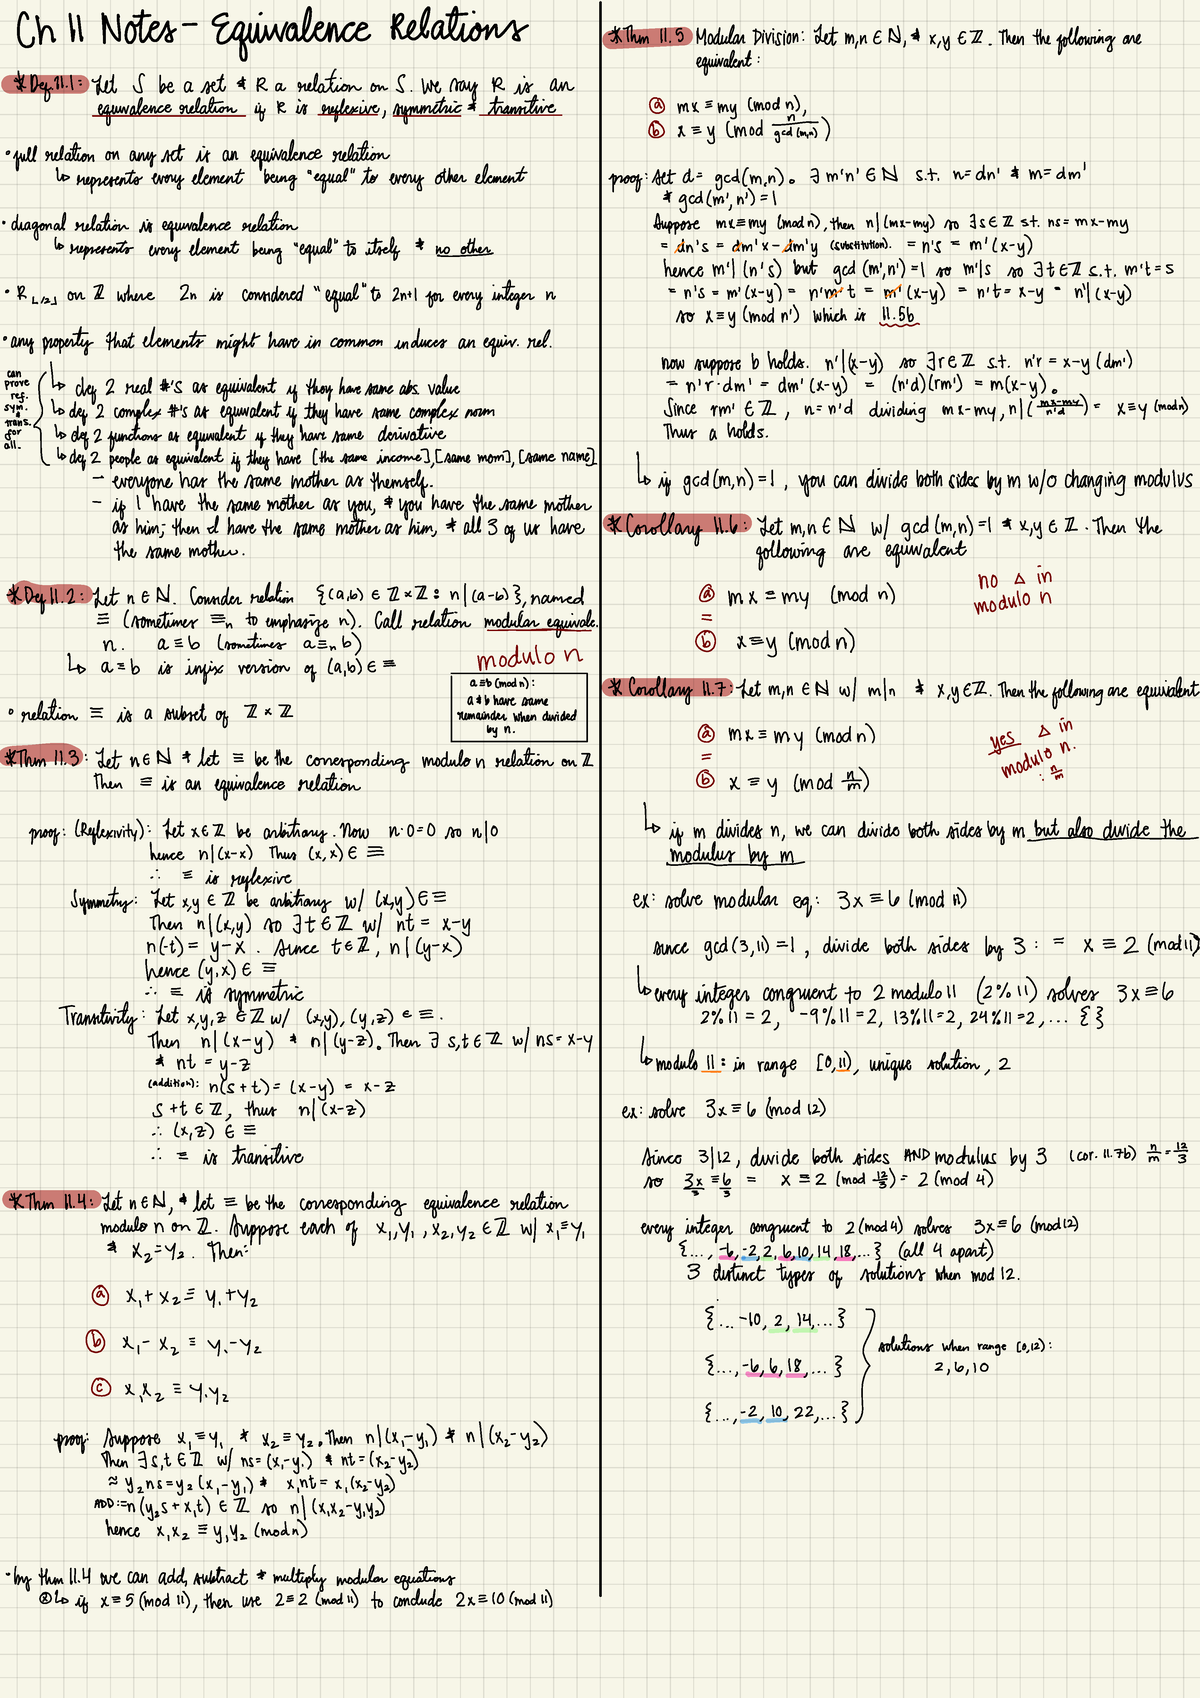 Ch 11 Notes - Equivalence Relations
* Def. 11.1: Let S be a set & R a relation on S. We say R is an
equivalence relation if R is reflexive, symmetric & transitive
• full relation on any set is an equivalence relation
↳ represents every element being "equal" to every other element
• diagonal relation is equivalence relation
↳ represents every element being "equal" to itself & no other
• R⌊1/2⌋ on ℤ where 2n is considered "equal" to 2n+1 for every integer n
• any property that elements might have in common induces an equiv. rel.
can prove ref. sym. & trans. for all.
↳ def 2 real #'s as equivalent if they have same abs. value
↳ def 2 complex #'s as equivalent if they have same complex norm
↳ def 2 functions as equivalent if they have same derivative
↳ def 2 people as equivalent if they have [the same income], [same mom], [same name]
- everyone has the same mother as themself.
- if I have the same mother as you, & you have the same mother
as him; then I have the same mother as him, & all 3 of us have
the same mother.
* Def 11.2: Let n ∈ ℕ. Consider relation {(a,b) ∈ ℤ×ℤ : n|(a-b)}, named
≡ (sometimes ≡n to emphasize n). Call relation modular equivale.
n. a≡b (sometimes a≡n b)
modulo n
↳ a≡b is infix version of (a,b) ∈ ≡
a≡b (mod n):
a & b have same
remainder when divided
by n.
• relation ≡ is a subset of ℤ×ℤ
* Thm 11.3: Let n∈ℕ & let ≡ be the corresponding modulo n relation on ℤ
Then ≡ is an equivalence relation
proof: (Reflexivity): Let x∈ℤ be arbitrary. Now n·0=0 so n|0
hence n|(x-x) Thus (x,x) ∈ ≡
∴ ≡ is reflexive
Symmetry: Let x,y ∈ ℤ be arbitrary w/ (x,y) ∈ ≡
Then n|(x,y) so ∃t∈ℤ w/ nt = x-y
n(-t) = y-x. Since t∈ℤ, n|(y-x)
hence (y,x) ∈ ≡
∴ ≡ is symmetric
Transitivity: Let x,y,z ∈ℤ w/ (x,y), (y,z) ∈ ≡.
Then n|(x-y) & n|(y-z). Then ∃ s,t∈ℤ w/ ns=x-y
& nt = y-z
(addition): n(s+t) = (x-y) = x-z
s+t ∈ ℤ, thus n|(x-z)
∴ (x,z) ∈ ≡
∴ ≡ is transitive
* Thm 11.4: Let n∈ℕ, & let ≡ be the corresponding equivalence relation
modulo n on ℤ. Suppose each of x₁,y₁, x₂,y₂ ∈ℤ w/ x₁≡y₁
& x₂=y₂. Then:
ⓐ x₁+x₂≡y₁+y₂
ⓑ x₁-x₂ ≡ y₁-y₂
ⓒ x₁x₂ ≡ y₁y₂
proof: Suppose x₁≡y₁ & x₂≡y₂. Then n|(x₁-y₁) & n|(x₂-y₂)
Then ∃s,t∈ℤ w/ ns=(x₁-y₁) & nt=(x₂-y₂)
≈ y₂ns=y₂(x₁-y₁) & x₁nt=x₁(x₂-y₂)
ADD:=n(y₂s+x₁t) ∈ ℤ so n|(x₁x₂-y₁y₂)
hence x₁x₂ ≡ y₁y₂ (mod n)
• by thm 11.4 we can add, subtract & multiply modular equations
↳ if x≡5 (mod 11), then use 2≡2 (mod 11) to conclude 2x≡10 (mod 11)
* Thm 11.5 Modular Division: Let m,n∈ℕ, & x,y∈ℤ. Then the following are
equivalent:
ⓐ mx≡my (mod n),
ⓑ x≡y (mod n/gcd(m,n))
proof: Set d=gcd(m,n). ∃ m'n'∈ℕ s.t. n=dn' & m=dm'
& gcd(m',n')=1
Suppose mx≡my (mod n), then n|(mx-my) so ∃s∈ℤ st. ns=mx-my
= dn's = dm'x-dm'y (substitution). = n's = m'(x-y)
hence m'|(n's) but gcd(m',n')=1 so m'|s so ∃t∈ℤ s.t. m't=s
= n's = m'(x-y) = n'm't = m'(x-y) = n't=x-y = n'|(x-y)
so x≡y (mod n') which is 11.5b
now suppose b holds. n'|(x-y) so ∃r∈ℤ s.t. n'r = x-y (dm')
= n'r·dm' = dm'(x-y) = (n'd)(rm') = m(x-y).
Since rm' ∈ℤ, n=n'd dividing mx-my, n|(mx-my/n'd) = x≡y (mod n)
Thus a holds.
↳ if gcd(m,n)=1, you can divide both sides by m w/o changing modulus
* Corollary 11.6: Let m,n∈ℕ w/ gcd(m,n)=1 & x,y∈ℤ. Then the
following are equivalent
ⓐ mx≡my (mod n)
=
ⓑ x≡y (mod n)
no Δ in
modulo n
* Corollary 11.7: Let m,n∈ℕ w/ m|n & x,y∈ℤ. Then the following are equivalent
ⓐ mx≡my (mod n)
=
ⓑ x≡y (mod n/m)
yes Δ in
modulo n.
: n/m
↳ if m divides n, we can divide both sides by m but also divide the
modulus by m
ex: solve modular eq: 3x≡6 (mod 11)
since gcd(3,11)=1, divide both sides by 3: = x≡2 (mod 11)
↳ every integer congruent to 2 modulo 11 (2%11) solves 3x≡6
2%11=2, -9%11=2, 13%11=2, 24%11=2,... {}
↳ modulo 11: in range [0,11), unique solution, 2
ex: solve 3x≡6 (mod 12)
Since 3|12, divide both sides AND modulus by 3 (cor. 11.7b) n/m = 12/3
so 3x/3 ≡ 6/3 = x≡2 (mod 12/3) = 2 (mod 4)
every integer congruent to 2 (mod 4) solves 3x≡6 (mod 12)
{..., -6, -2, 2, 6, 10, 14, 18,...} (all 4 apart)
3 distinct types of solutions when mod 12.
{... -10, 2, 14,...}
{..., -6, 6, 18,...}
{..., -2, 10, 22,...}
solutions when range [0,12):
2, 6, 10